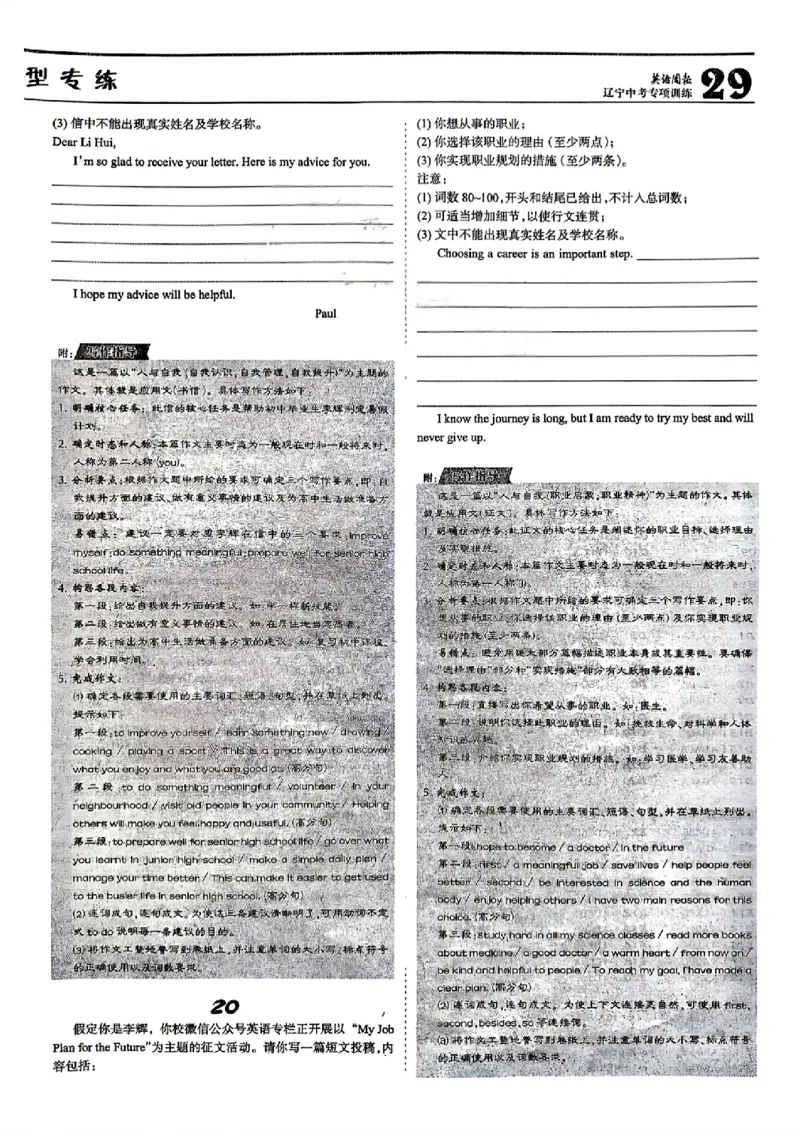 型专练
英语周报
辽宁中考专项训练
29
(3) 信中不能出现真实姓名及学校名称。
Dear Li Hui,
I'm so glad to receive your letter. Here is my advice for you.
I hope my advice will be helpful.
Paul
附:写作指导
这是一篇以“人与自我(自我认识,自我管理,自我提升)”为主题的
作文。其体裁是应用文(书信)。具体写作方法如下:
1. 明确核心任务:此信的核心任务是帮助初中毕业生李辉制定暑假
计划。
2. 确定时态和人称:本篇作文主要时态为一般现在时和一般将来时,
人称为第二人称(you)。
3. 分析要点:根据作文题中所给的要求可确定三个写作要点,即:自
我提升方面的建议、做有意义事情的建议及为高中生活做准备方
面的建议。
易错点:建议一定要对应李辉在信中的三个要求:improve
myself; do something meaningful; prepare well for senior high
school life.
4. 构思各段内容:
第一段:给出自我提升方面的建议。如:学一样新技能。
第二段:给出做有意义事情的建议。如:在居住地当志愿者。
第三段:给出为高中生活做准备方面的建议。如:复习初中课程、
学会利用时间。
5. 完成作文:
(1) 确定各段需要使用的主要词汇、短语、句型,并在草纸上列出。
提示如下:
第一段:to improve yourself / learn something new / drawing /
cooking / playing a sport / This is a great way to discover
what you enjoy and what you are good at. (高分句)
第二段:to do something meaningful / volunteer / in your
neighbourhood / visit old people in your community / Helping
others will make you feel happy and useful. (高分句)
第三段:to prepare well for senior high school life / go over what
you learnt in junior high school / make a simple daily plan /
manage your time better / This can make it easier to get used
to the busier life in senior high school. (高分句)
(2) 连词成句,连句成文。为使这三条建议清晰明了,可用动词不定
式 to do 说明每一条建议的目的。
(3) 将作文工整地誊写到卷纸上,并注意单词的大小写、标点符号
的正确使用以及词数要求。
20
假定你是李辉,你校微信公众号英语专栏正开展以“My Job
Plan for the Future”为主题的征文活动。请你写一篇短文投稿,内
容包括:
(1) 你想从事的职业;
(2) 你选择该职业的理由(至少两点);
(3) 你实现职业规划的措施(至少两条)。
注意:
(1) 词数 80~100,开头和结尾已给出,不计入总词数;
(2) 可适当增加细节,以使行文连贯;
(3) 文中不能出现真实姓名及学校名称。
Choosing a career is an important step.
I know the journey is long, but I am ready to try my best and will
never give up.
附:写作指导
这是一篇以“人与自我(职业启蒙,职业精神)”为主题的作文。其体
裁是应用文(征文)。具体写作方法如下:
1. 明确核心任务:此征文的核心任务是阐述你的职业目标、选择理由
及实现措施。
2. 确定时态和人称:本篇作文主要时态为一般现在时和一般将来时,
人称为第一人称(I)。
3. 分析要点:根据作文题中所给的要求可确定三个写作要点,即:你
想从事的职业、你选择该职业的理由(至少两点)及你实现职业规
划的措施(至少两条)。
易错点:避免用绝大部分篇幅描述职业本身或其重要性。要确保
“选择理由”部分和“实现措施”部分有大致相等的篇幅。
4. 构思各段内容:
第一段:直接写出你希望从事的职业。如:医生。
第二段:说明你选择此职业的理由。如:挽救生命、对科学和人体
知识感兴趣。
第三段:介绍你实现职业规划的措施。如:学习医学、学习友善助
人。
5. 完成作文:
(1) 确定各段需要使用的主要词汇、短语、句型,并在草纸上列出。
提示如下:
第一段:hope to become / a doctor / in the future
第二段:first / a meaningful job / save lives / help people feel
better / second / be interested in science and the human
body / enjoy helping others / I have two main reasons for this
choice. (高分句)
第三段:study hard in all my science classes / read more books
about medicine / a good doctor / a warm heart / from now on /
be kind and helpful to people / To reach my goal, I have made a
clear plan. (高分句)
(2) 连词成句,连句成文。为使上下文连接更自然,可使用 first,
second, besides, so 等连接词。
(3) 将作文工整地誊写到卷纸上,并注意单词的大小写、标点符号
的正确使用以及词数要求。